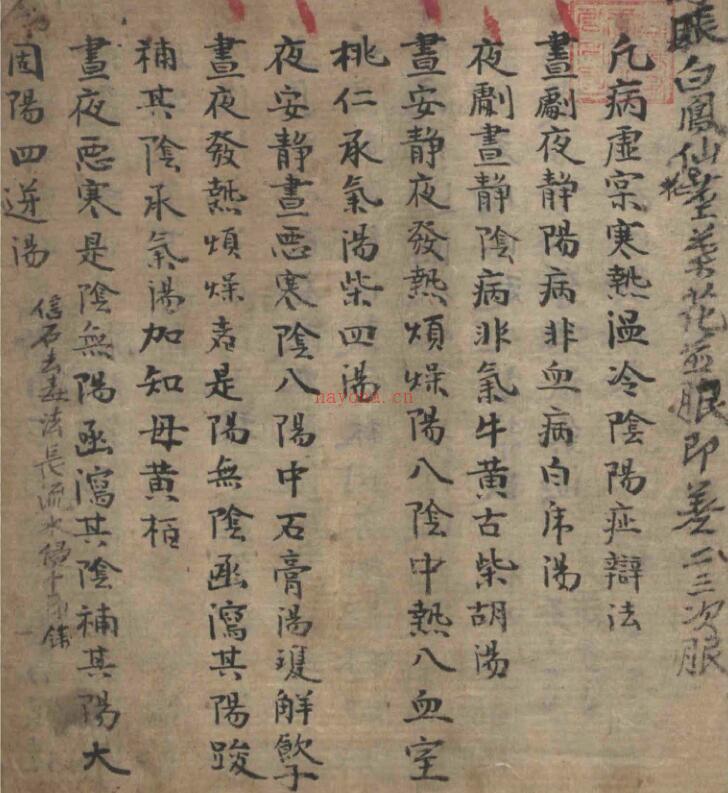 脹白鳳仙莖葉花並服即差二三次服
凢病虛宲寒熱温冷陰陽症辯法
晝劇夜静陽病非血病白乕湯
夜劇晝静陰病非氣牛黄古柴胡湯
晝安静夜發熱煩燥陽八陰中熱八血室
桃仁承氣湯柴四湯
夜安静晝悪寒陰八陽中石膏湯瓊解飲子
晝夜發熱煩燥者是陽無陰亟瀉其陽踆
補其陰承氣湯加知母黄栢
晝夜悪寒是陰無陽亟瀉其陰補其陽大
固陽四逆湯
信石去毒法長流水
nayona.cn